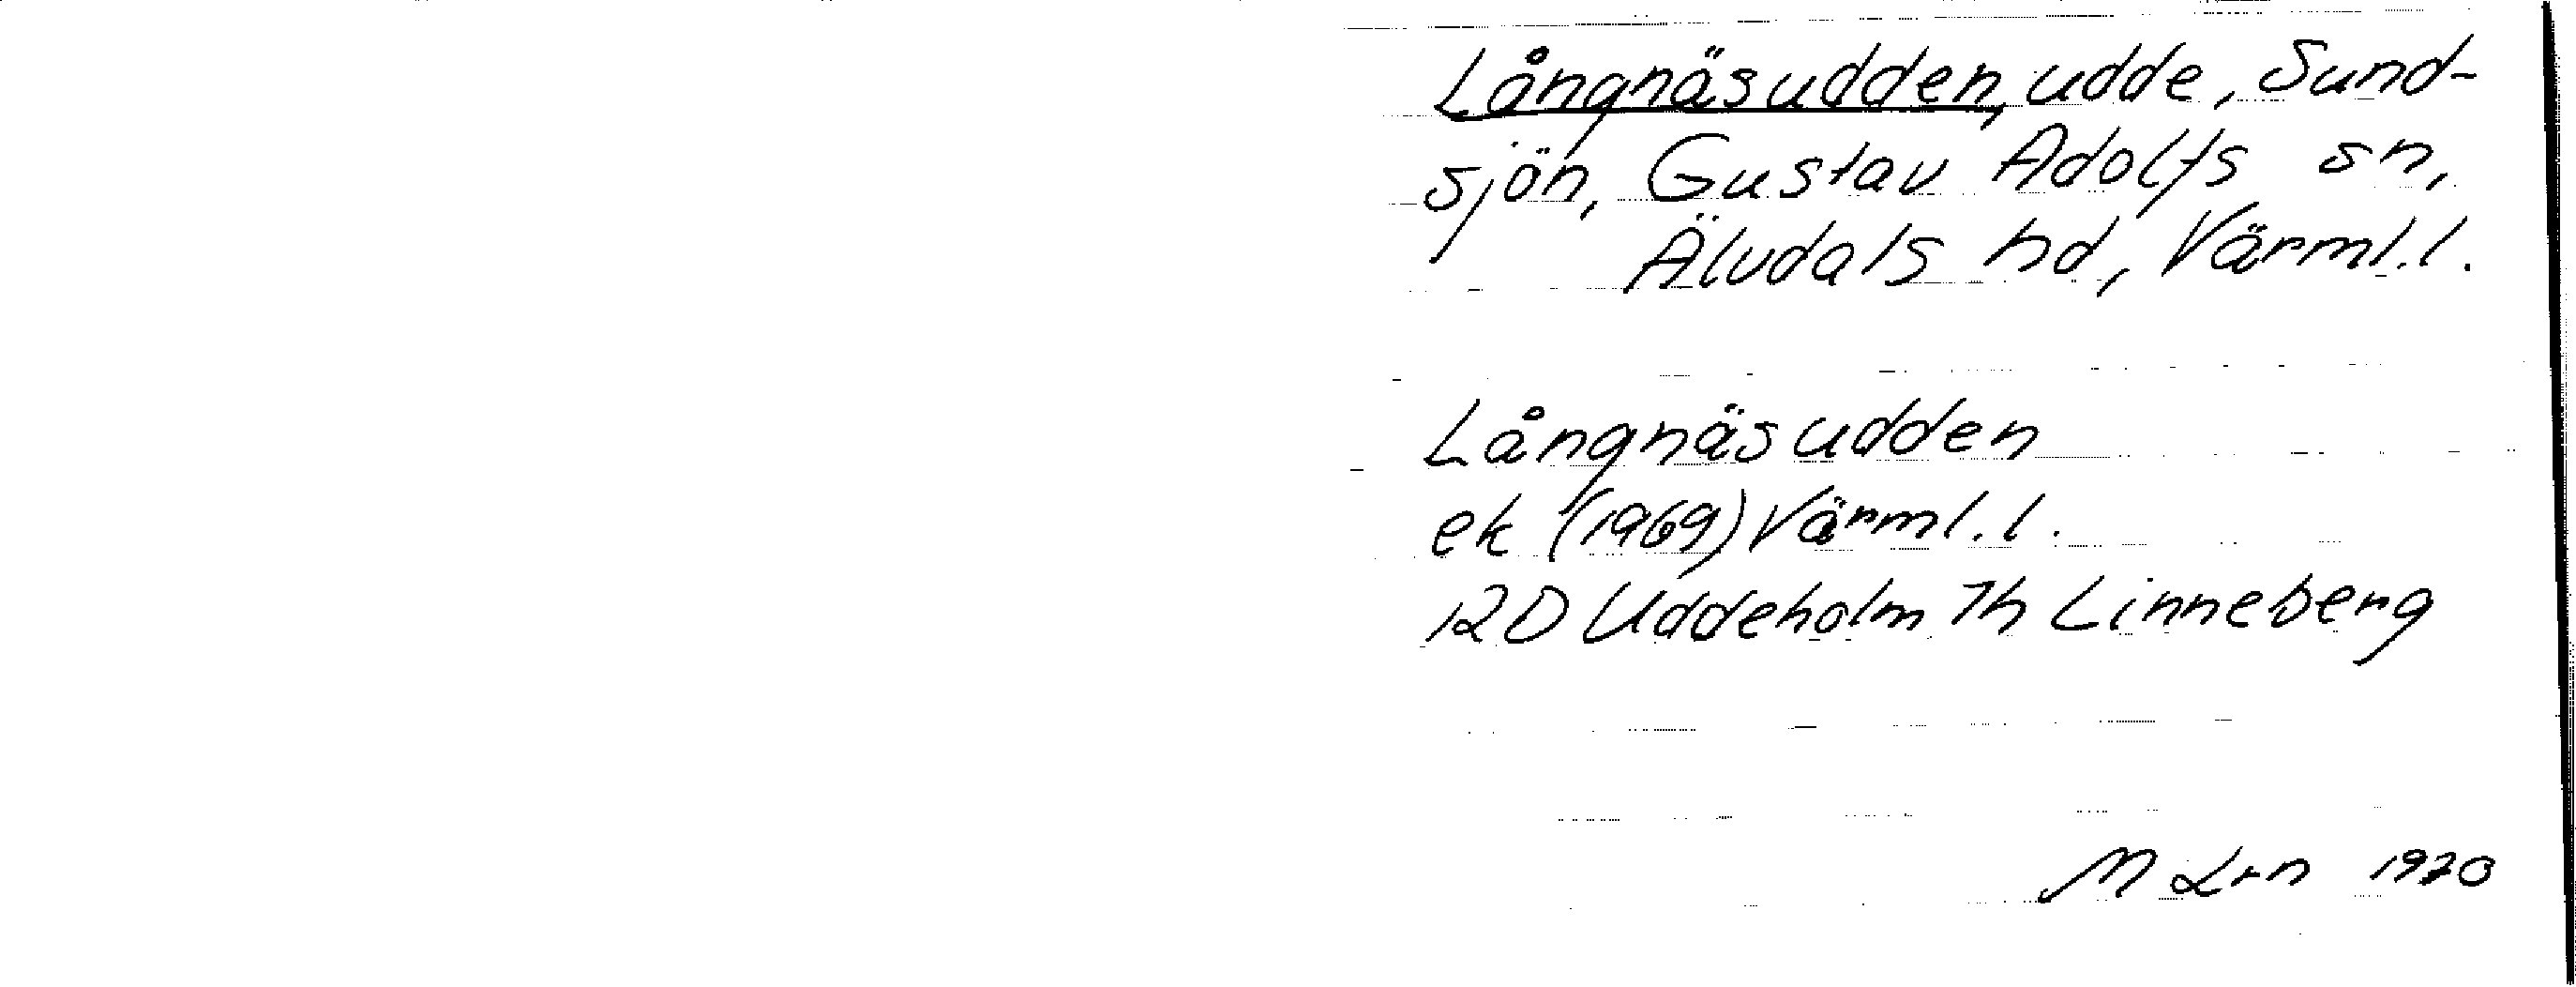 Långnäsudden, udde, Sund-
sjön, Gustav Adolfs sn,
Älvdals hd, Värml.l.
Långnäsudden
ek (1969) Värml.l.
12D Uddeholm Th Linneberg
M Lrn 1970